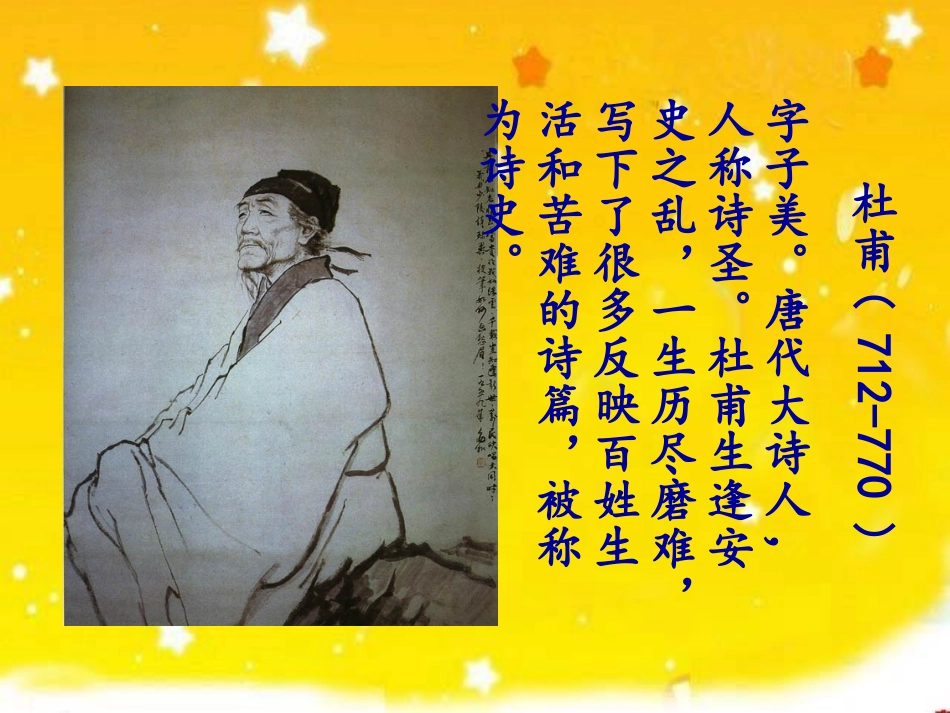 杜甫（712–770）
字子美。唐代大诗人，
人称诗圣。杜甫生逢安
史之乱，一生历尽磨难，
写下了很多反映百姓生
活和苦难的诗篇，被称
为诗史。